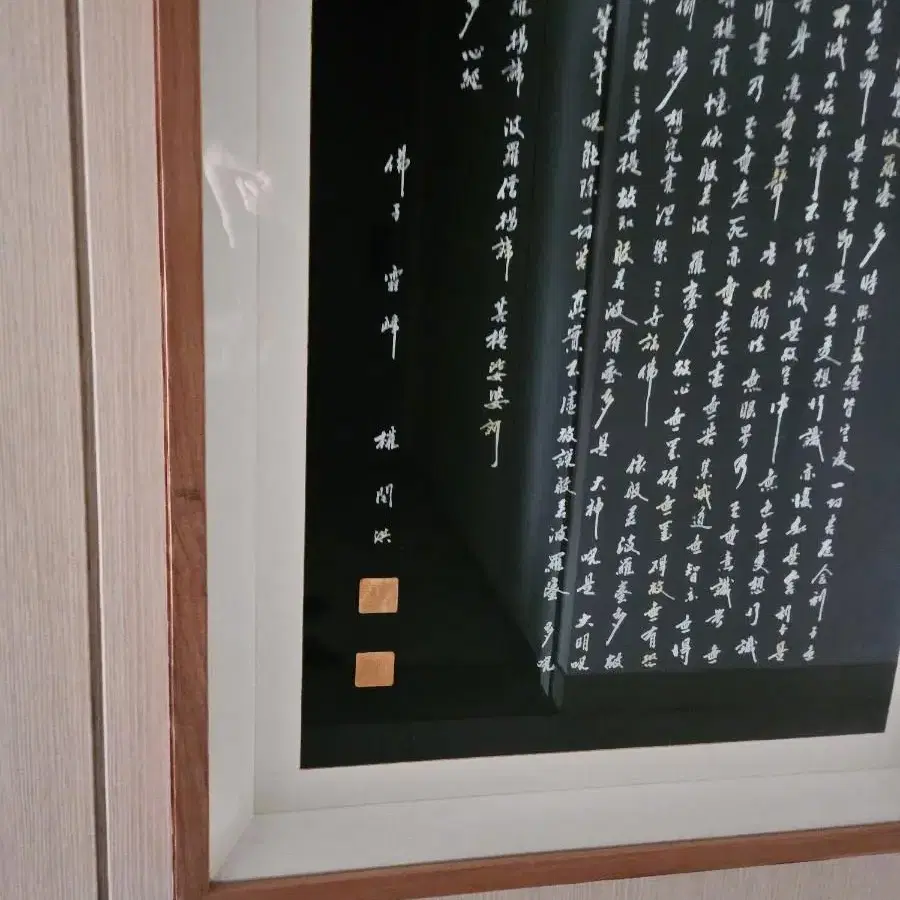 波羅蜜多時照見五蘊皆空度一切苦厄舍利子色
色即是空空即是色受想行識亦復如是舍利子是
不滅不垢不淨不增不減是故空中無色無受想行識
身意無色聲香味觸法無眼界乃至無意識界無
明盡乃至無老死亦無老死盡無苦集滅道無智亦無得
提薩埵依般若波羅蜜多故心無罣碍無罣碍故無有恐
倒夢想究竟涅槃三世諸佛依般若波羅蜜多故
藐三菩提故知般若波羅蜜多是大神呪是大明呪
等等呪能除一切苦真實不虛故說般若波羅蜜多呪
羅揭諦波羅僧揭諦菩提娑婆訶
多心經
佛子 峰 權閏洪